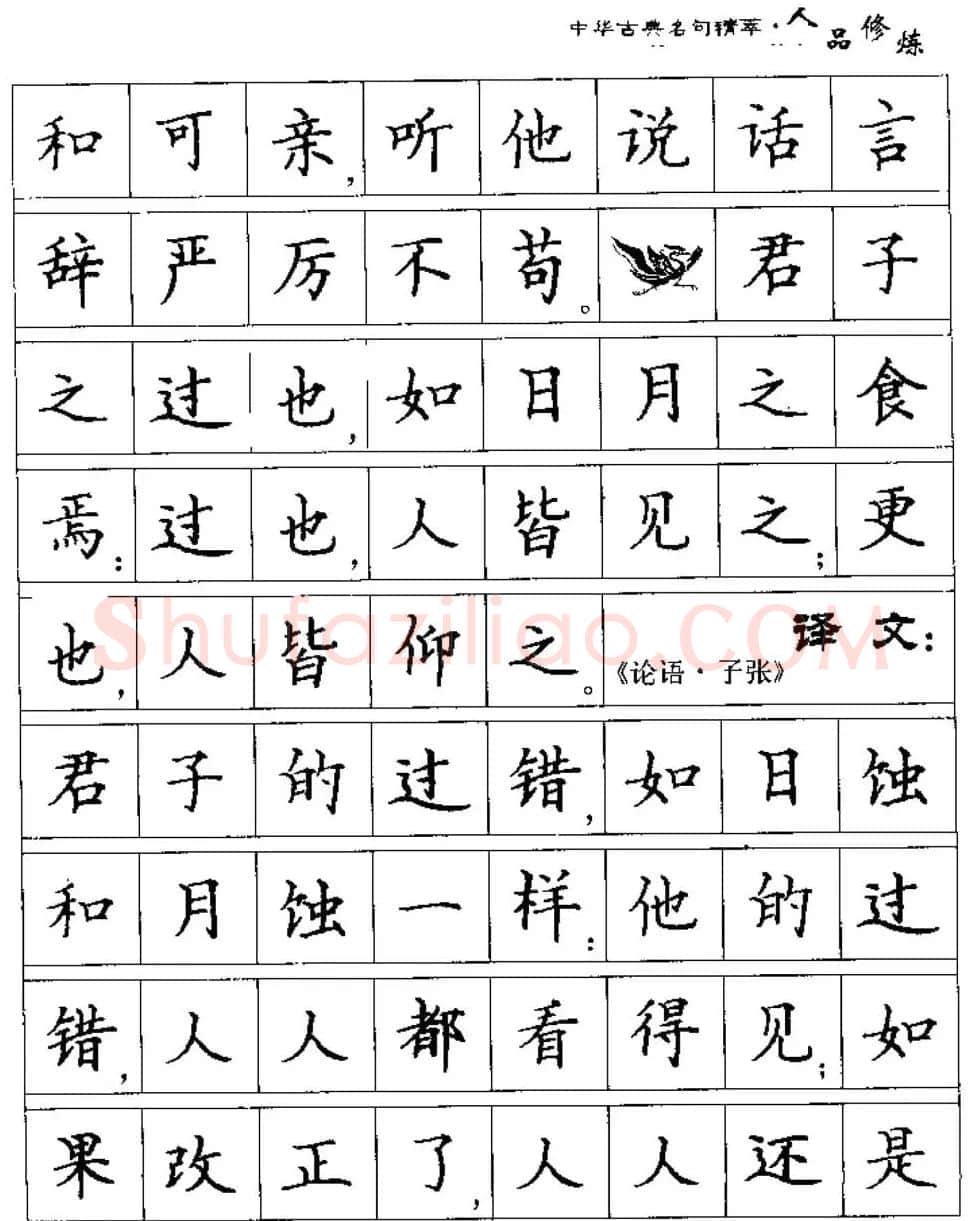 中华古典名句精萃·人品修炼
和可亲,听他说话言
辞严厉不苟。君子
之过也,如日月之食
焉:过也,人皆见之;更
也,人皆仰之。《论语·子张》译文:
Shufaziliao.COM
君子的过错,如日蚀
和月蚀一样:他的过
错,人人都看得见;如
果改正了,人人还是